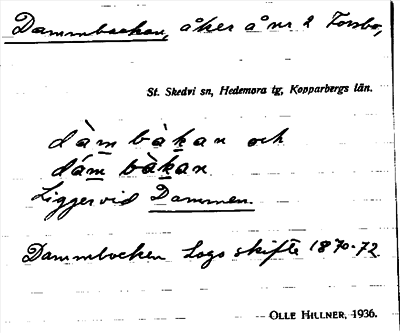 Dammbackan, åker å nr 2 Forsbo,
St. Skedvi sn, Hedemora tg, Kopparbergs län.
dàm bàkan och
dám bàkan
Ligger vid Dammen.
Dammbocken Laga skifte 1870-72
OLLE HILLNER, 1936.